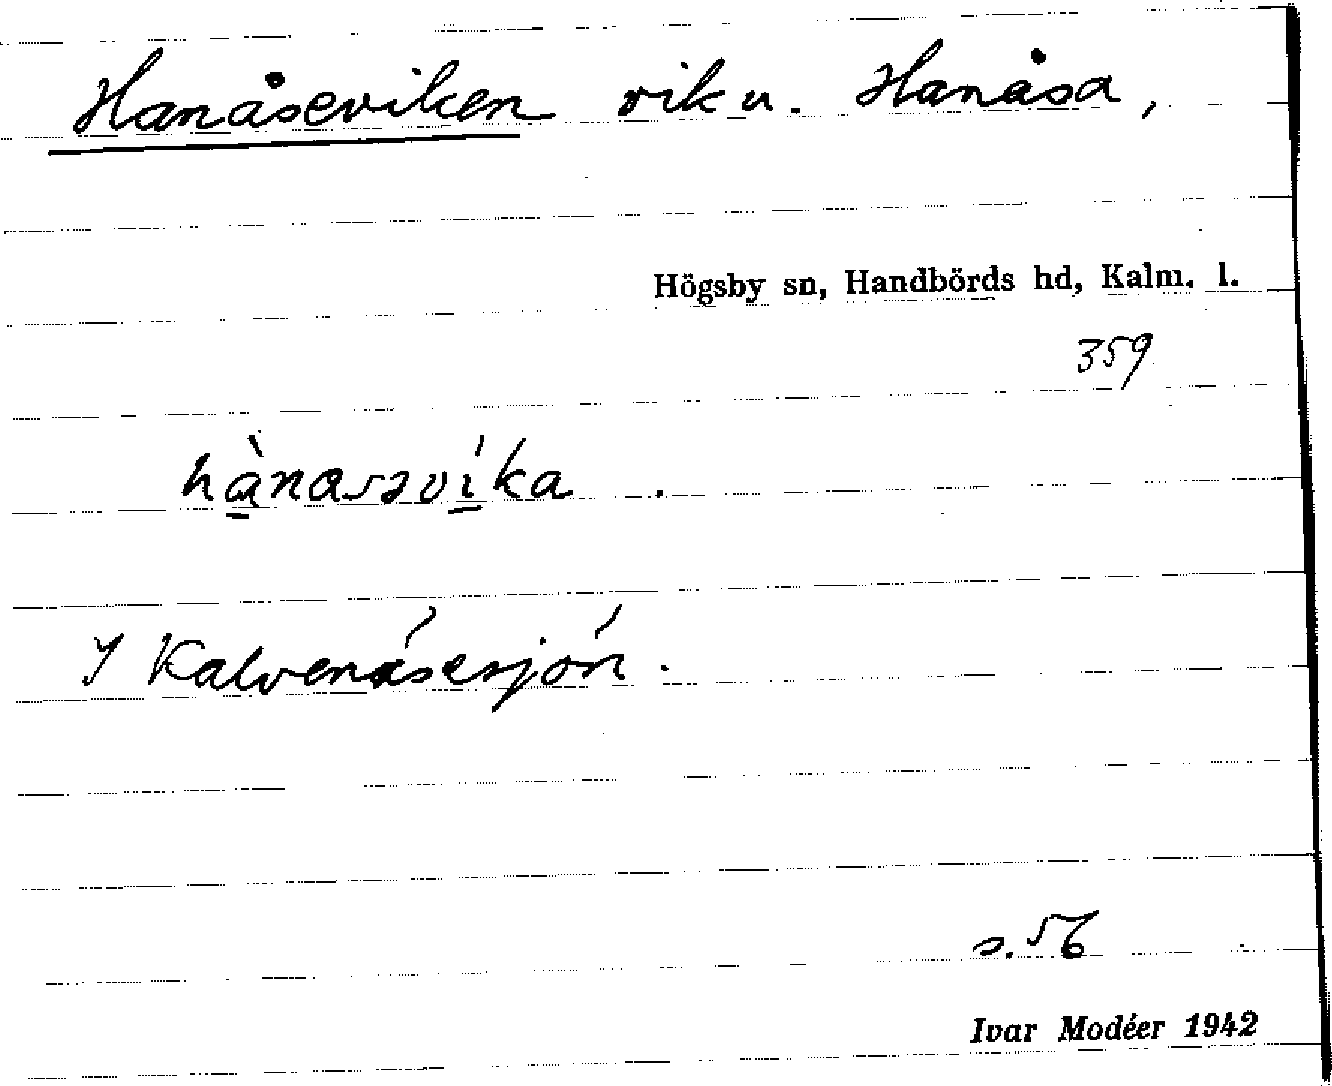 Hanåseviken vik u. Hanåsa,
Högsby sn, Handbörds hd, Kalm. l.
359
hànasəvíka .
I Kalvenäsesjön.
s. 56
Ivar Modéer 1942